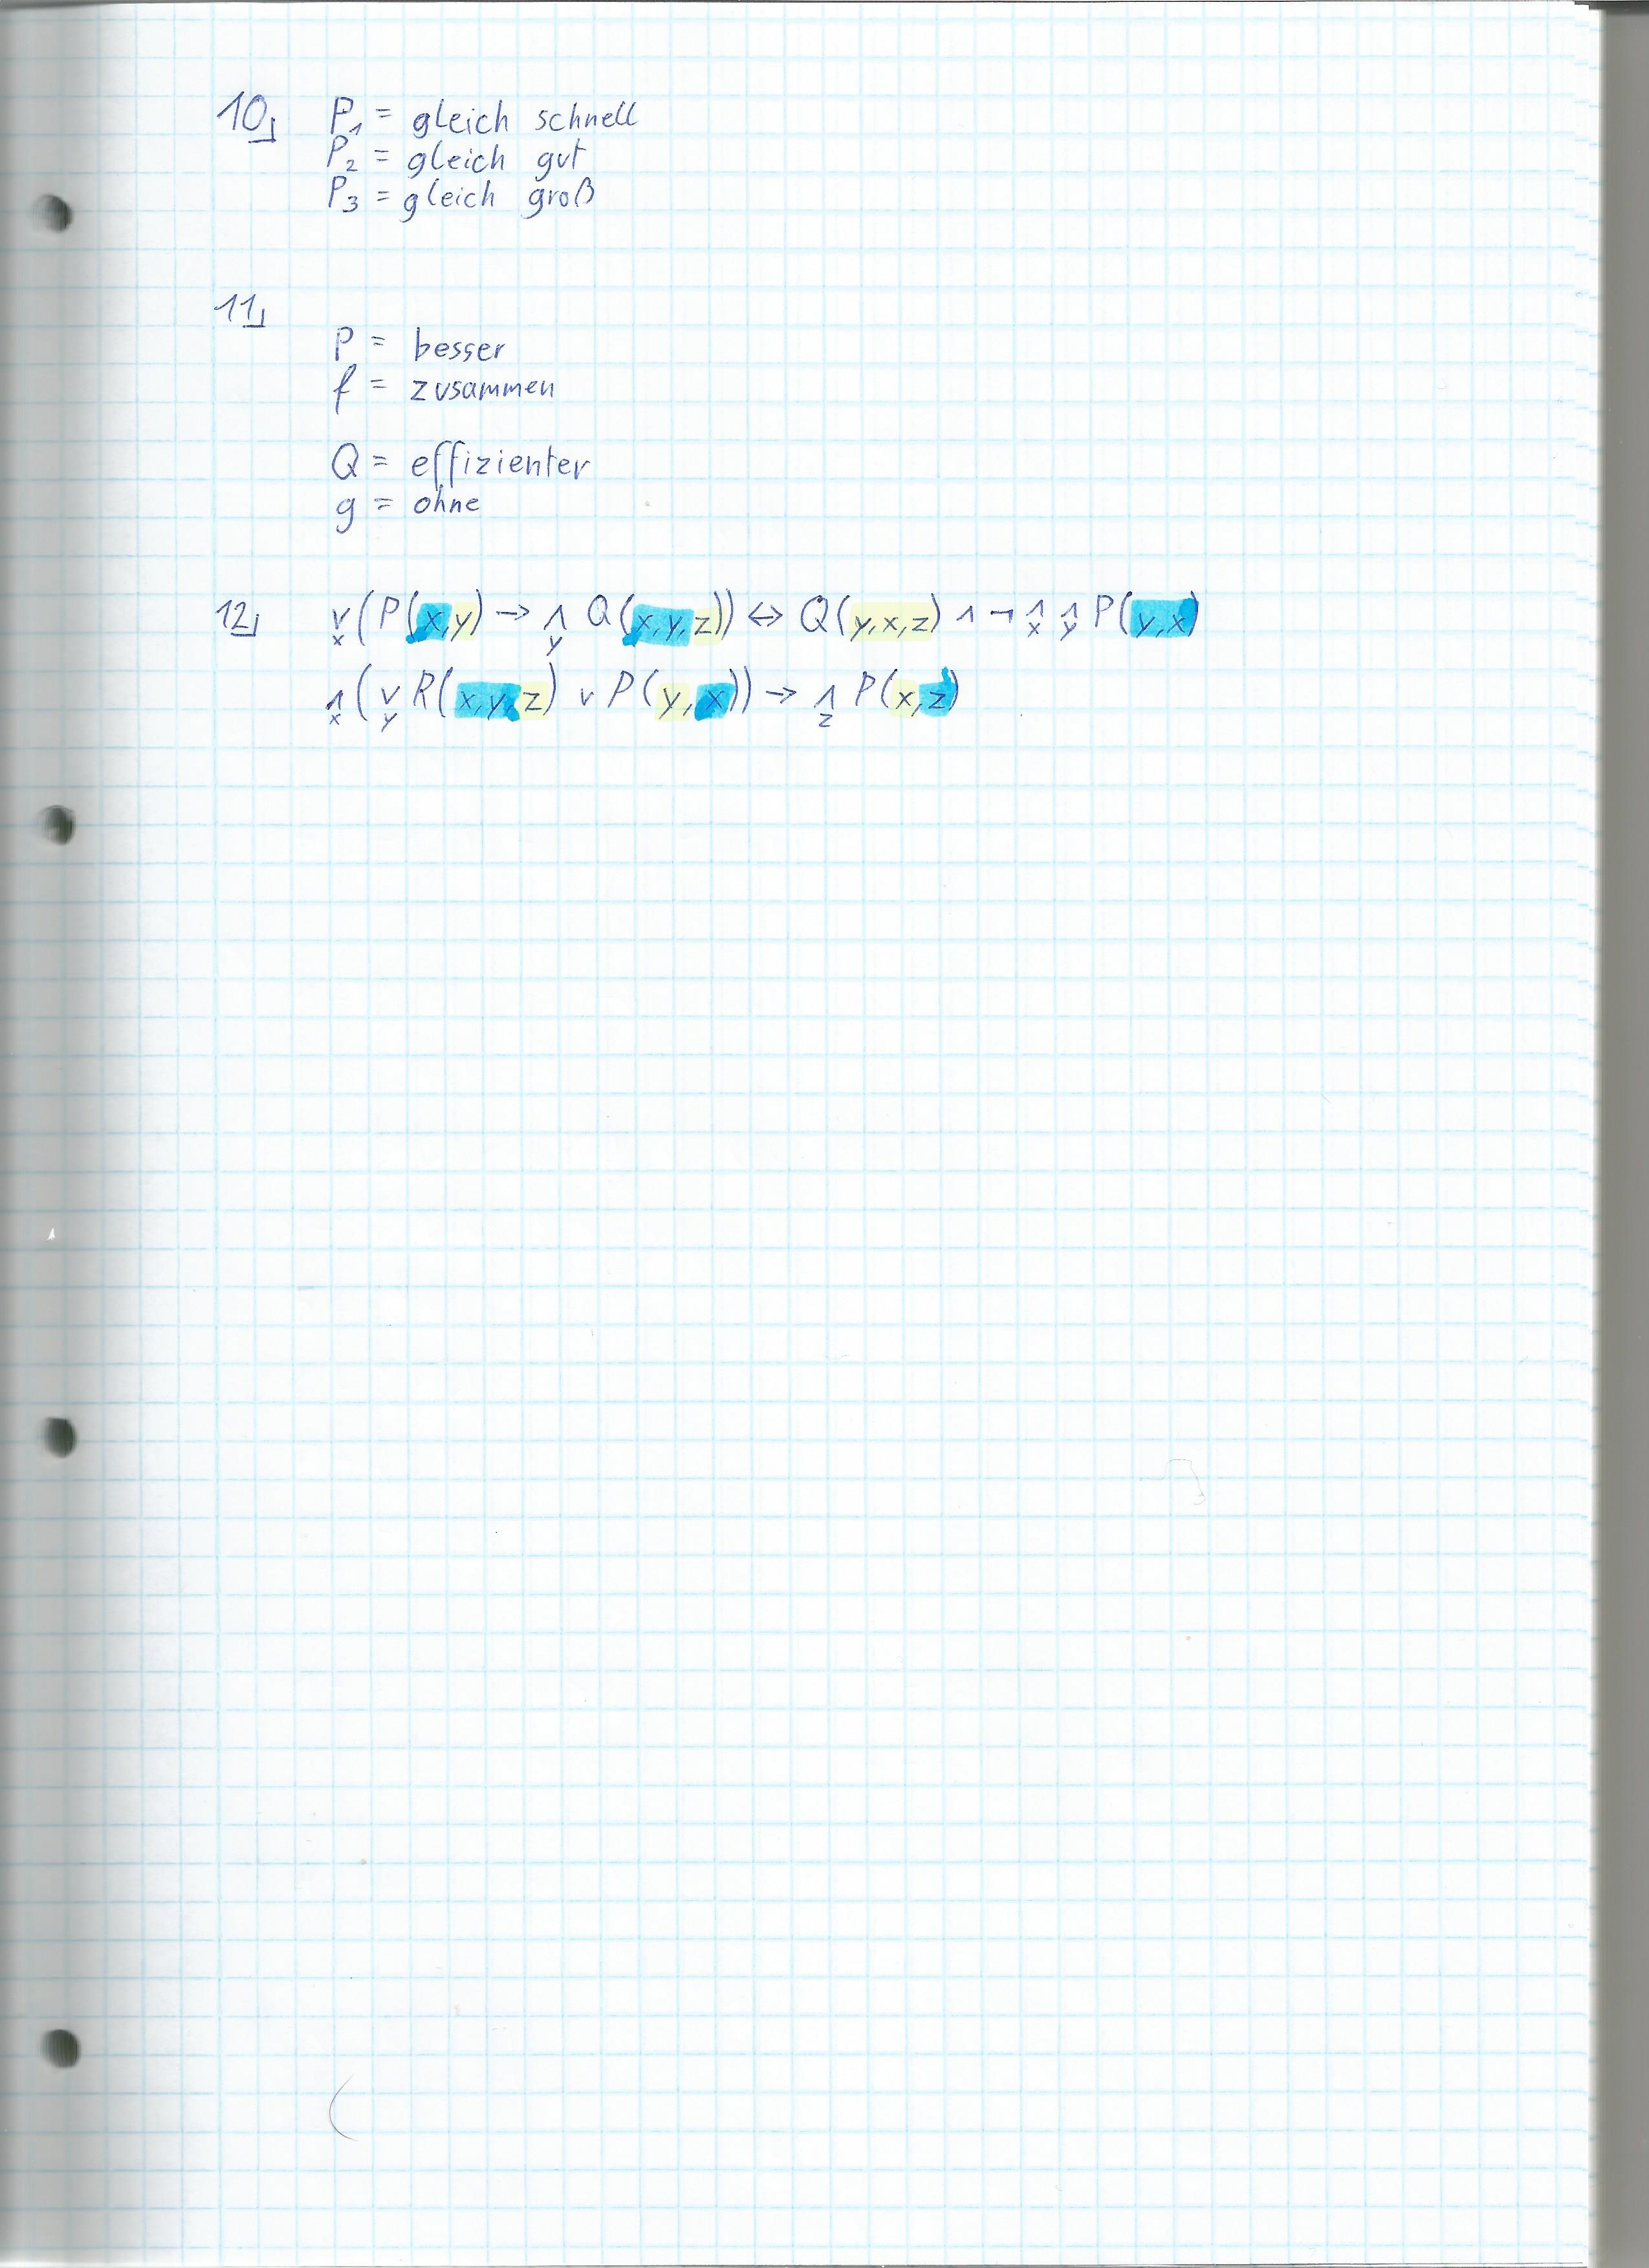 10) P₁ = gleich schnell
P₂ = gleich gut
P₃ = gleich groß
11)
P = besser
f = zusammen
Q = effizienter
g = ohne
12) ∨x (P(x,y) → ∧y Q(x,y,z)) ↔ Q(y,x,z) ∧ ¬ ∧x ∧y P(y,x)
∧x (∨y R(x,y,z) ∨ P(y,x)) → ∧z P(x,z)